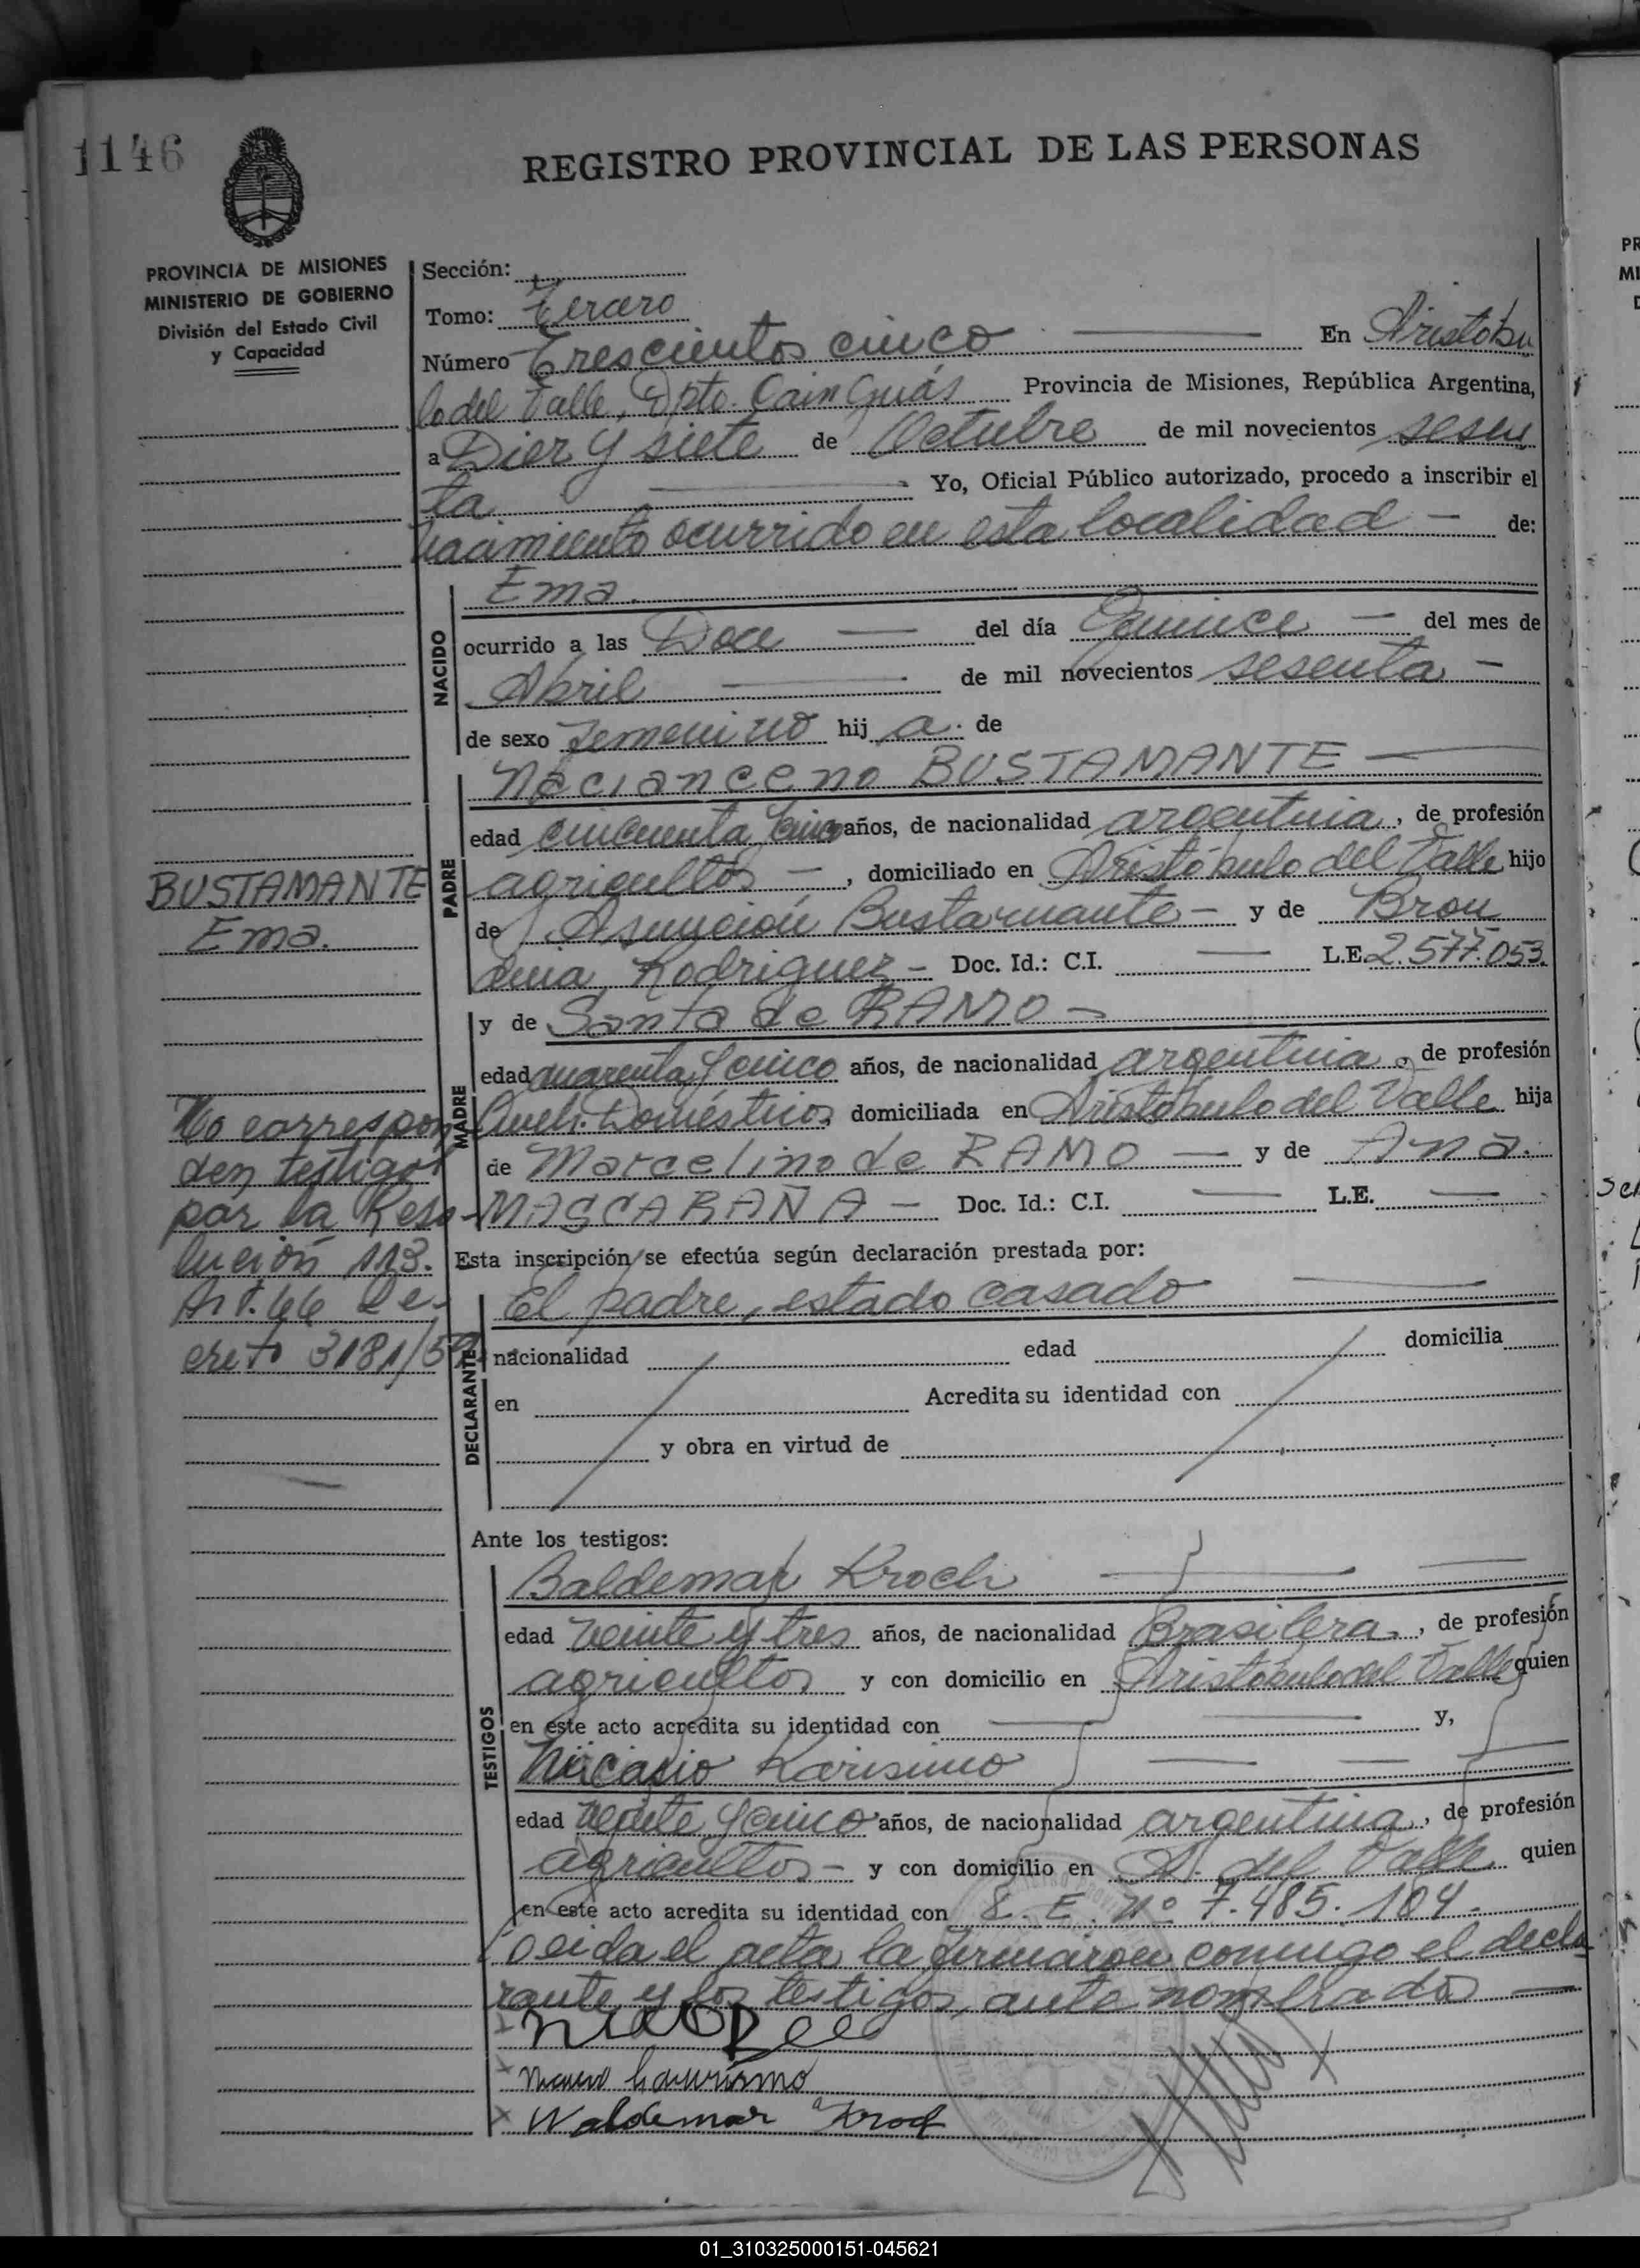 1146
REGISTRO PROVINCIAL DE LAS PERSONAS
PROVINCIA DE MISIONES
MINISTERIO DE GOBIERNO
División del Estado Civil
y Capacidad
Sección:
Tomo: Tercero
Número Trescientos cinco En Aristóbu
lo del Valle, Dpto. Cainguás Provincia de Misiones, República Argentina,
a Diez y siete de Octubre de mil novecientos sesen
ta Yo, Oficial Público autorizado, procedo a inscribir el
nacimiento ocurrido en esta localidad - de:
NACIDO
Ema.
ocurrido a las Doce del día Quince - del mes de
Abril de mil novecientos sesenta -
de sexo femenino hij a. de
PADRE
Nacianceno BUSTAMANTE
edad cincuenta cinco años, de nacionalidad argentina, de profesión
agricultor -, domiciliado en Aristóbulo del Valle hijo
de Asunción Bustamante - y de Bron
dina Rodriguez - Doc. Id.: C.I. L.E. 2.577.053.
BUSTAMANTE
Ema.
MADRE
y de Santa de RAMO -
edad cuarenta y cinco años, de nacionalidad argentina, de profesión
Queh. Domésticos domiciliada en Aristóbulo del Valle hija
de Marcelino de RAMO - y de Ana.
MASCARAÑA - Doc. Id.: C.I. L.E.
No correspon
den testigos
por la Reso-
lución 113.
Art. 46 De-
creto 3181/59
Esta inscripción se efectúa según declaración prestada por:
DECLARANTE
El padre, estado casado
nacionalidad edad domicilia
en Acredita su identidad con
y obra en virtud de
Ante los testigos:
TESTIGOS
Baldemar Kroch
edad veinte y tres años, de nacionalidad Brasilera, de profesión
agricultor y con domicilio en Aristóbulo del Valle quien
en este acto acredita su identidad con y,
Nicasio Karisimo
edad veinte y cinco años, de nacionalidad argentina, de profesión
agricultor - y con domicilio en A. del Valle quien
en este acto acredita su identidad con L. E. Nº 7.485.104.
Leida el acta la firmaron conmigo el decla
rante y los testigos, ante nombrados
Waldemar Krof
01_310325000151-045621